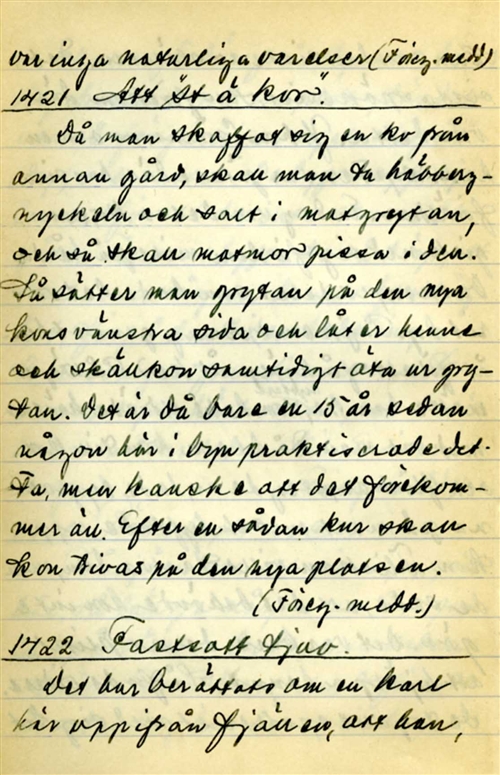 var inga naturliga varelser (Föreg. medd)
1421 Att "stå kor".
Då man skaffat sig en ko från
annan gård, skall man ta häbberg-
nyckeln och salt i matgrytan,
och så skall matmor pissa i den.
Så sätter man grytan på den nya
kons vänstra sida och låter henne
och skällkon samtidigt äta ur gry-
tan. Det är då bara en 15 år sedan
någon här i byn praktiserade det.
Ja, men kanske att det förekom-
mer än. Efter en sådan kur skall
kon trivas på den nya platsen.
(Föreg. medd.)
1422 Fastsatt tjuv.
Det har berättats om en karl
här uppifrån fjällen, att han,